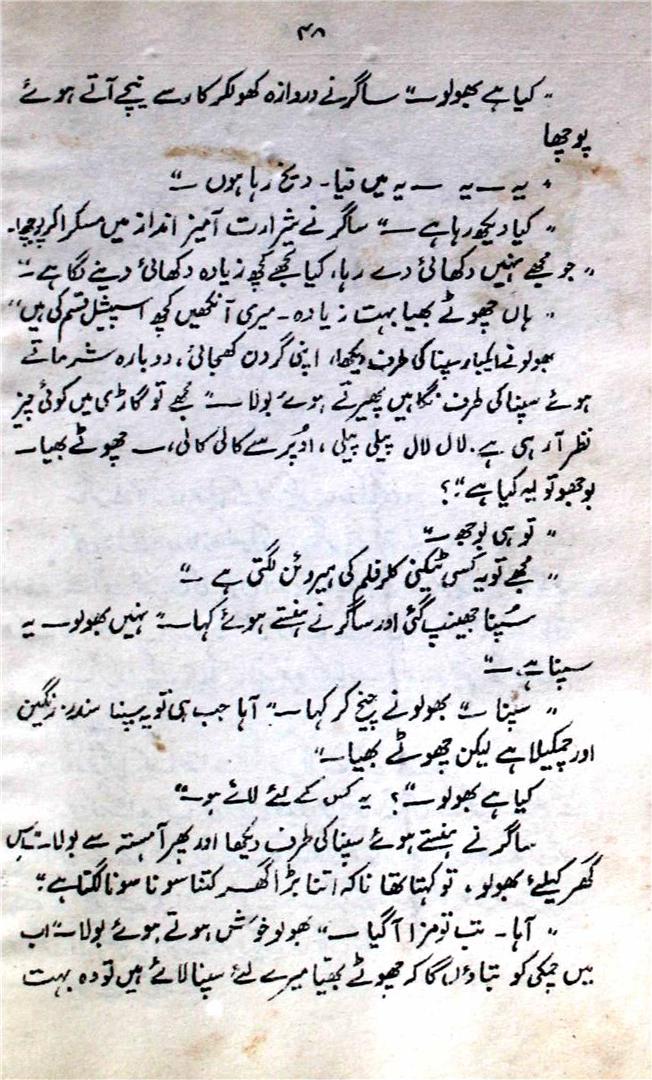 ۴۸
" کیا ہے بھولو۔" ساگر نے دروازہ کھولکر کار سے نیچے آتے ہوئے
پوچھا
" یہ ۔ یہ ۔ یہ میں بھیا۔ دیکھ رہا ہوں ۔"
" کیا دیکھ رہا ہے ۔" ساگر نے شرارت آمیز انداز میں مسکرا کر پوچھا۔
" جو مجھے نہیں دکھائی دے رہا، کیا تجھے کچھ زیادہ دکھائی دینے لگا ہے ۔"
" ہاں چھوٹے بھیا بہت زیادہ ۔ میری آنکھیں کچھ اسپیشل قسم کی ہیں"
بھولو نے ایکبار سپنا کی طرف دیکھا، اپنی گردن کھجائی، دوبارہ شرماتے
ہوئے سپنا کی طرف نگاہیں پھیرتے ہوئے بولا ۔" مجھے تو گاڑی میں کوئی چیز
نظر آ رہی ہے ۔ لال لال پیلی پیلی ، اوپر سے کالی کالی، ۔ چھوٹے بھیا ۔
بوجھو تو یہ کیا ہے"؟
" تو ہی بوجھ ۔"
" مجھے تو یہ کسی ٹیکنی کلر فلم کی ہیروئن لگتی ہے ۔"
سپنا جھینپ گئی اور ساگر نے ہنستے ہوئے کہا ۔" نہیں بھولو ۔ یہ
سپنا ہے ۔"
" سپنا ۔" بھولو نے چیخ کر کہا ۔" آہا جب ہی تو یہ سپنا سندر۔ رنگین
اور چمکیلا ہے لیکن چھوٹے بھیا ۔"
کیا ہے بھولو ۔"؟ یہ کس کے لئے لائے ہو ۔"
ساگر نے ہنستے ہوئے سپنا کی طرف دیکھا اور پھر آہستہ سے بولا ۔" اس
گھر کیلئے بھولو ، تو کہتا تھا نا کہ اتنا بڑا گھر کتنا سونا سونا لگتا ہے"
" آہا ۔ تب تو مزا آ گیا ۔" بھولو خوش ہوتے ہوئے بولا ۔" اب
میں چمکی کو بتاؤں گا کہ چھوٹے بھیا میرے لئے سپنا لائے ہیں تو وہ بہت